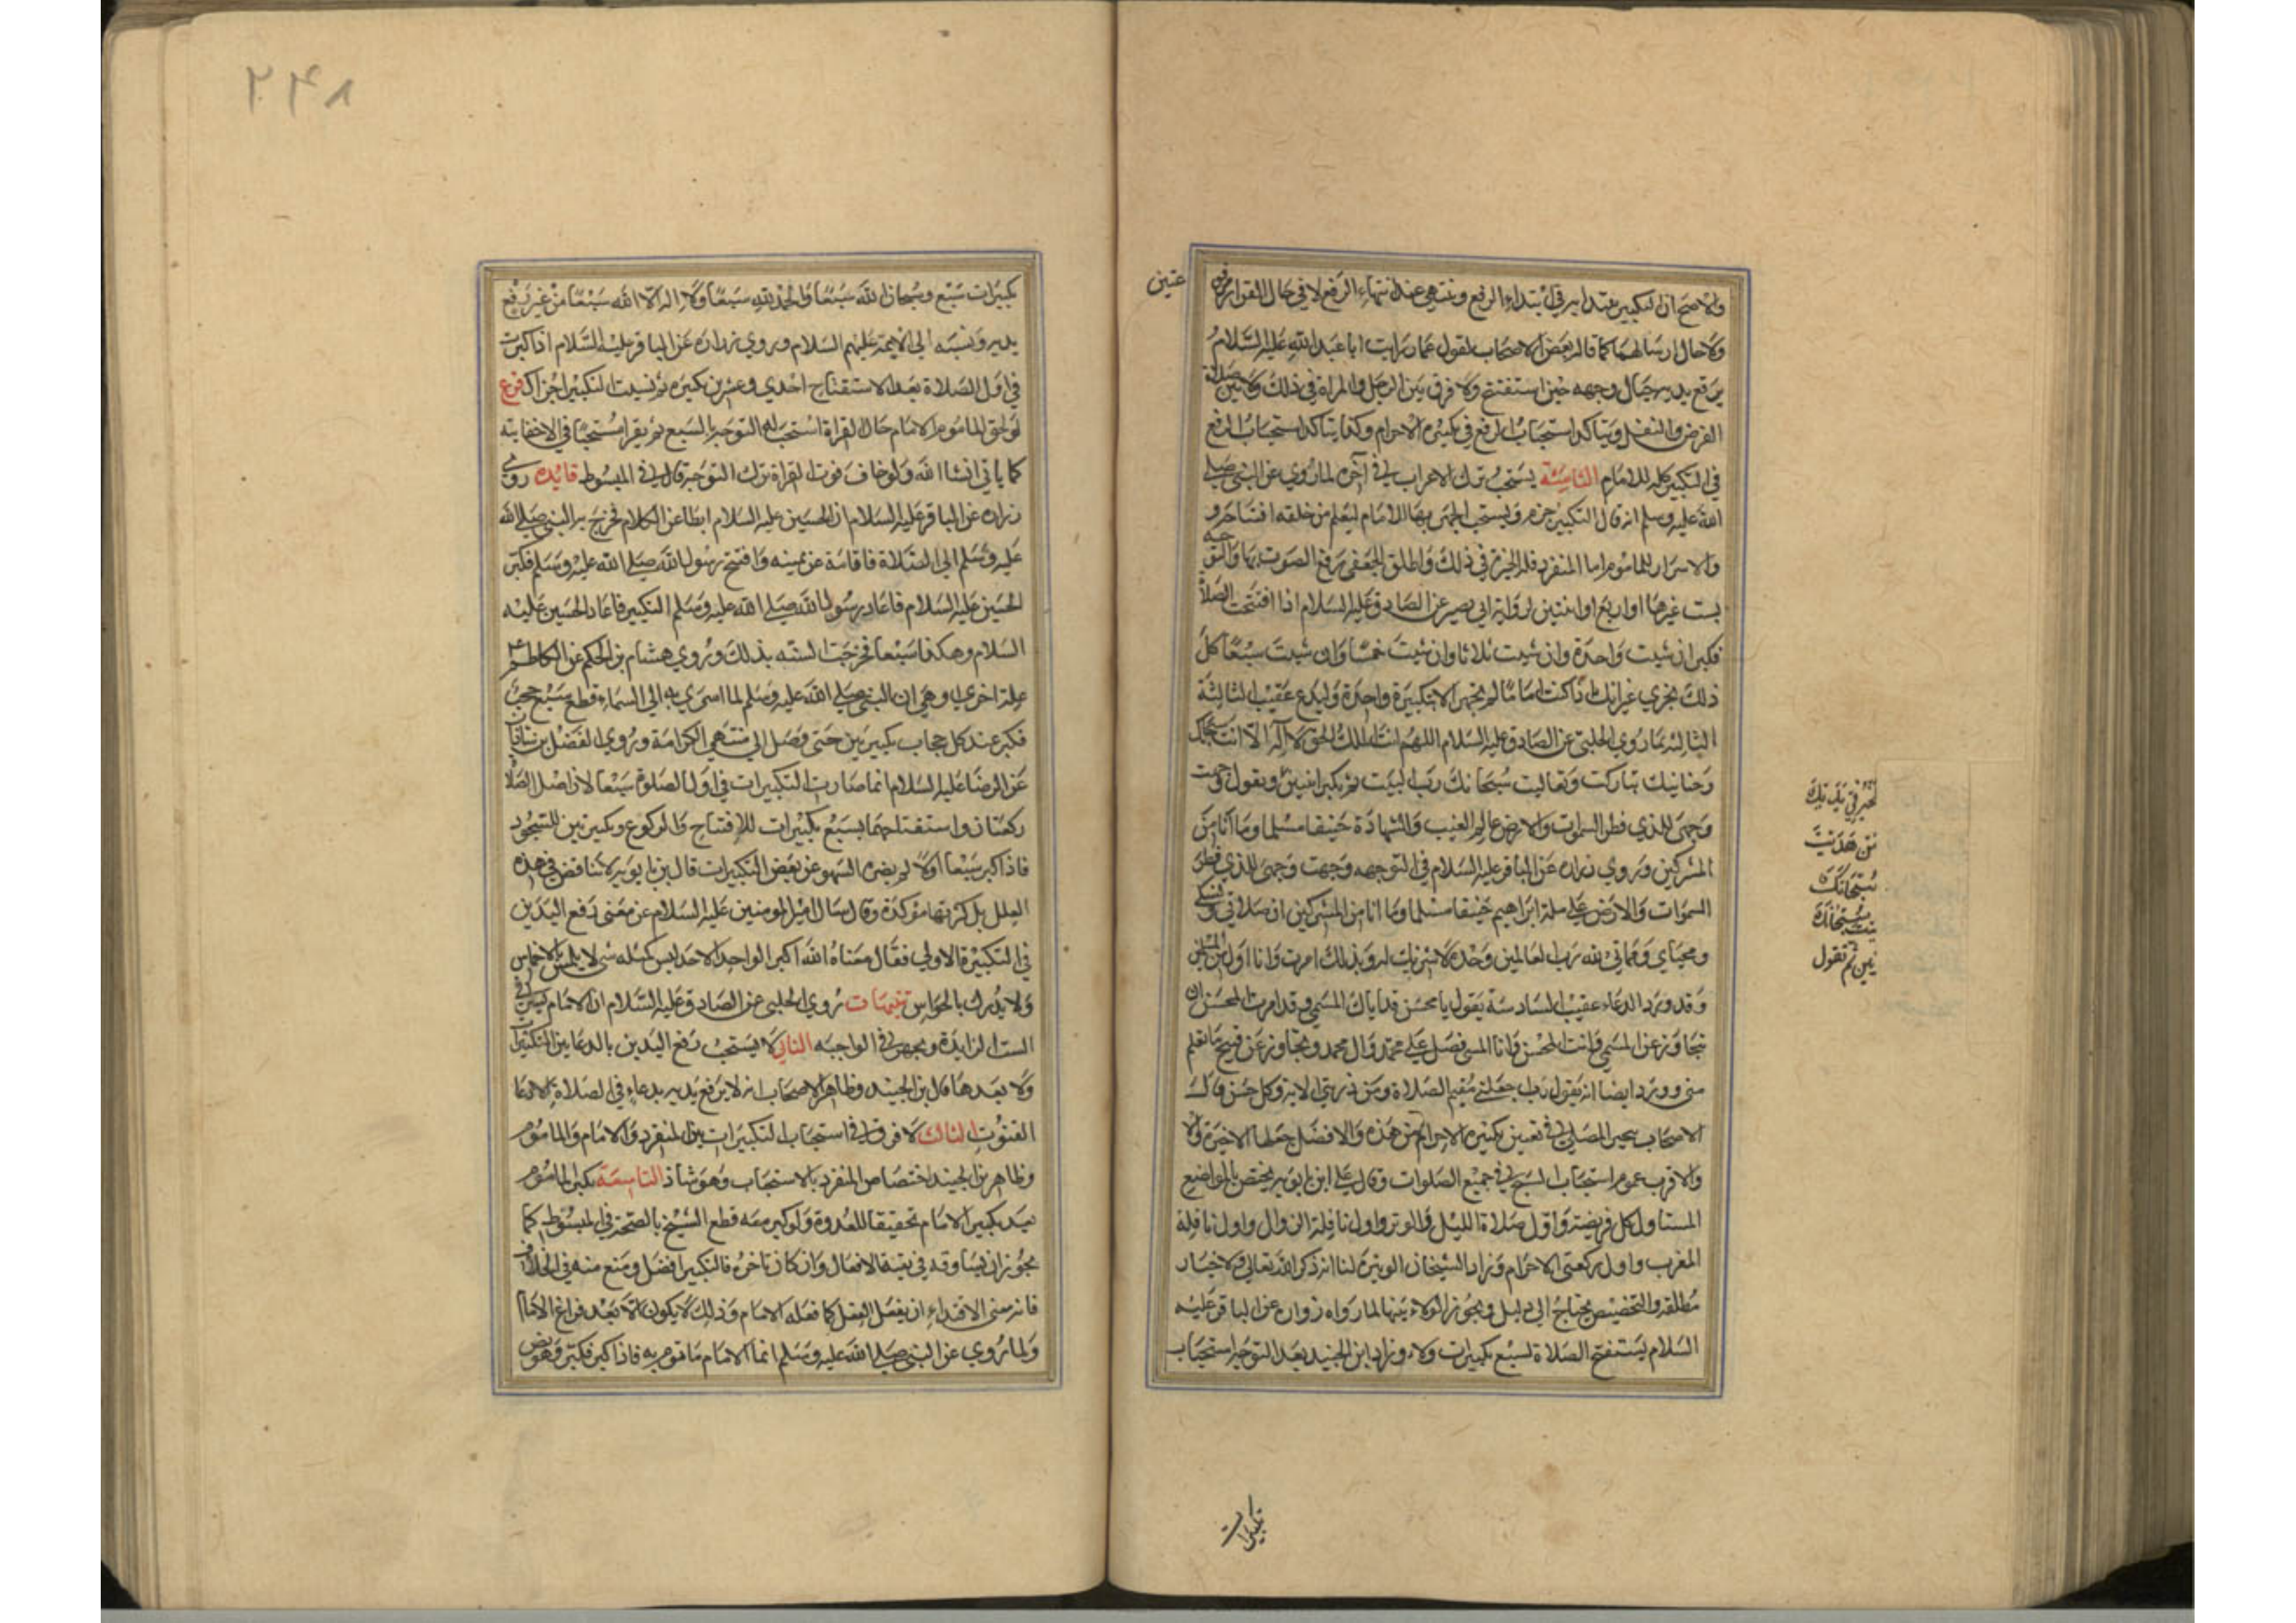 والاصح ان التكبير يبتدا به في ابتداء الرفع وينتهي عند انتهاء الرفع لا في حال القرار مرفو
عتين
ولا حال ارسالهما كما قاله بعض الاصحاب لقول عمار رايت ابا عبد الله عليه السلام
يرفع يديه حيال وجهه حين استفتح ولا فرق بين الرجل والمراة في ذلك ولا بين صلاة
الفرض والنفل ويتاكد استحباب الرفع في تكبيره الاحرام وكذا يتاكد استحباب الرفع
في التكبير كله للامام الثامنة يستحب ترك الاعراب في آخره لما روي عن النبي صلى
الله عليه وسلم انه قال التكبير جزم ويستحب الجهر بها للامام ليعلم من خلفه افتتاحه و
والاسرار للماموم اما المنفرد فله الخيرة في ذلك واطلق الجعفي رفع الصوت بها والتوجه
بست غيرها او اربع او اثنتين لرواية ابي بصير عن الصادق عليه السلام اذا افتتحت الصلاة
فكبر ان شيت واحدة وان شيت ثلاثا وان شيت خمسا وان شيت سبعا كل
ذلك مجزي غير انك اذا كنت اماما لم تجهر الا بتكبيرة واحدة وليدع عقيب الثالثة
الثالثة بما روي الحلبي عن الصادق عليه السلام اللهم انت الملك الحق لا اله الا انت سبحانك
وحنانيك تباركت وتعاليت سبحانك رب البيت ثم يكبر اثنين ويقول وجهت
وجهي للذي فطر السموات والارض عالم الغيب والشهادة حنيفا مسلما وما انا من
المشركين وروي زراره عن الباقر عليه السلام في التوجهه وجهت وجهي للذي فطر
السموات والارض على ملة ابراهيم حنيفا مسلما وما انا من المشركين ان صلاتي ونسكي
ومحياي ومماتي لله رب العالمين وحده لا شريك له وبذلك امرت وانا اول المسلمين
وقد ورد الدعاء عقيب السادسة بقول يا محسن قد اتاك المسي وقد امرت المحسن ان
يتجاوز عن المسي وانت المحسن وانا المسي فصل على محمد وال محمد وتجاوز عن قبيح ما تعلم
مني وورد ايضا انه يقول رب اجعلني مقيم الصلاة ومن ذريتي الاية وكل حسن قال
الاصحاب يتخير المصلي في تعيين تكبيره الاحرام من هذه والافضل جعلها الاخيرة
والاقرب عموم استحباب السبع في جميع الصلوات وقال علي ابن بابويه يختص بالمواضع
الستة اول كل فريضة واول صلاة الليل والوتر واول نافلة الزوال واول نافلة
المغرب واول ركعتي الاحرام وزاد الشيخان الوتيرة لنا انه ذكر الله تعالى والاخبار
مطلقه والتخصيص يحتاج الى دليل ويجوز الولاء بينها لما رواه زرارة عن الباقر عليه
السلام يستفتح الصلاة لسبع تكبيرات ولاء وزاد ابن الجنيد بعد التوجه استحباب
تكبيرات
سبحانك
ثم تقول
٢٤٨
تكبيرات سبع وسبحان الله سبعا والحمد لله سبعا ولا اله الا الله سبعا من غير رفع
يديه ونسبه الى الايمة عليهم السلام وروي زراره عن الباقر عليه السلام اذا كبرت
في اول الصلاة بعد الاستفتاح احدي وعشرين تكبيره ثم نسيت التكبير اجزاك فرع
لو لحق الماموم الامام حال القراة استحب له التوجه بالسبع ثم يقرا مستحبا في الاخفاتيه
كما ياتي انشا الله ولو خاف فوت القراة ترك التوجه قال في المبسوط فايده روى
زراره عن الباقر عليه السلام ان الحسين عليه السلام ابطا عن الكلام فخرج به النبي صلى الله
عليه وسلم الى الصلاة فاقامه عن يمينه وافتتح رسول الله صلى الله عليه وسلم فكبر
الحسين عليه السلام فاعاد رسول الله صلى الله عليه وسلم التكبير فاعاد الحسين عليه
السلام وهكذا سبعا فخرجت السنه بذلك وروي هشام بن الحكم عن الكاظم
علة اخري وهي ان النبي صلى الله عليه وسلم لما اسري به الى السماء قطع سبع حجب
فكبر عند كل حجاب تكبيرتين حتى وصل الى منتهى الكرامة وروي الفضل بن شاذان
عن الرضا عليه السلام انما صارت التكبيرات في اول الصلوة سبعا لان اصل الصلاة
ركعتان واستفتاحهما بسبع تكبيرات للافتتاح والركوع وتكبيرتين للسجود
فاذا كبر سبعا اولا لم يضره السهو عن بعض التكبيرات قال بن بابويه لا تناقض في هذه
العلل بل كثرتها مؤكدة وقال سال امير المومنين عليه السلام عن معنى رفع اليدين
في التكبيرة الاولي فقال معناه الله اكبر الواحد الاحد ليس كمثله شي لا يلمس بالاخماس
ولا يدرك بالحواس تتمات روي الحلبي عن الصادق عليه السلام ان الامام يسر في
الست الزايدة ويجهر في الواجبه الثاني لا يستحب رفع اليدين بالدعا بين التكبيرات
ولا بعدها قال بن الجنيد وظاهر الاصحاب انه لا يرفع يديه بدعاء في الصلاة الا دعا
القنوت الثالث لا فرق في استحباب التكبيرات بين المنفرد والامام والماموم
وظاهر بن الجنيد اختصاص المنفرد بالاستحباب وهو شاذ التاسعة يكبر الماموم
بعد تكبير الامام تحقيقا للقدوة ولو كبر معه قطع الشيخ بالصحة في المبسوط كما
يجوز ان يساوقه في بقية الافعال وان كان تاخره فالتكبير افضل ومنع منه في الخلاف
فانه معنى الاقتداء ان يفعل الفعل كما فعله الامام وذلك لا يكون الا بعد فراغ الامام
ولما روي عن النبي صلى الله عليه وسلم انما الامام ماتموم به فاذا كبر فكبروهو نص